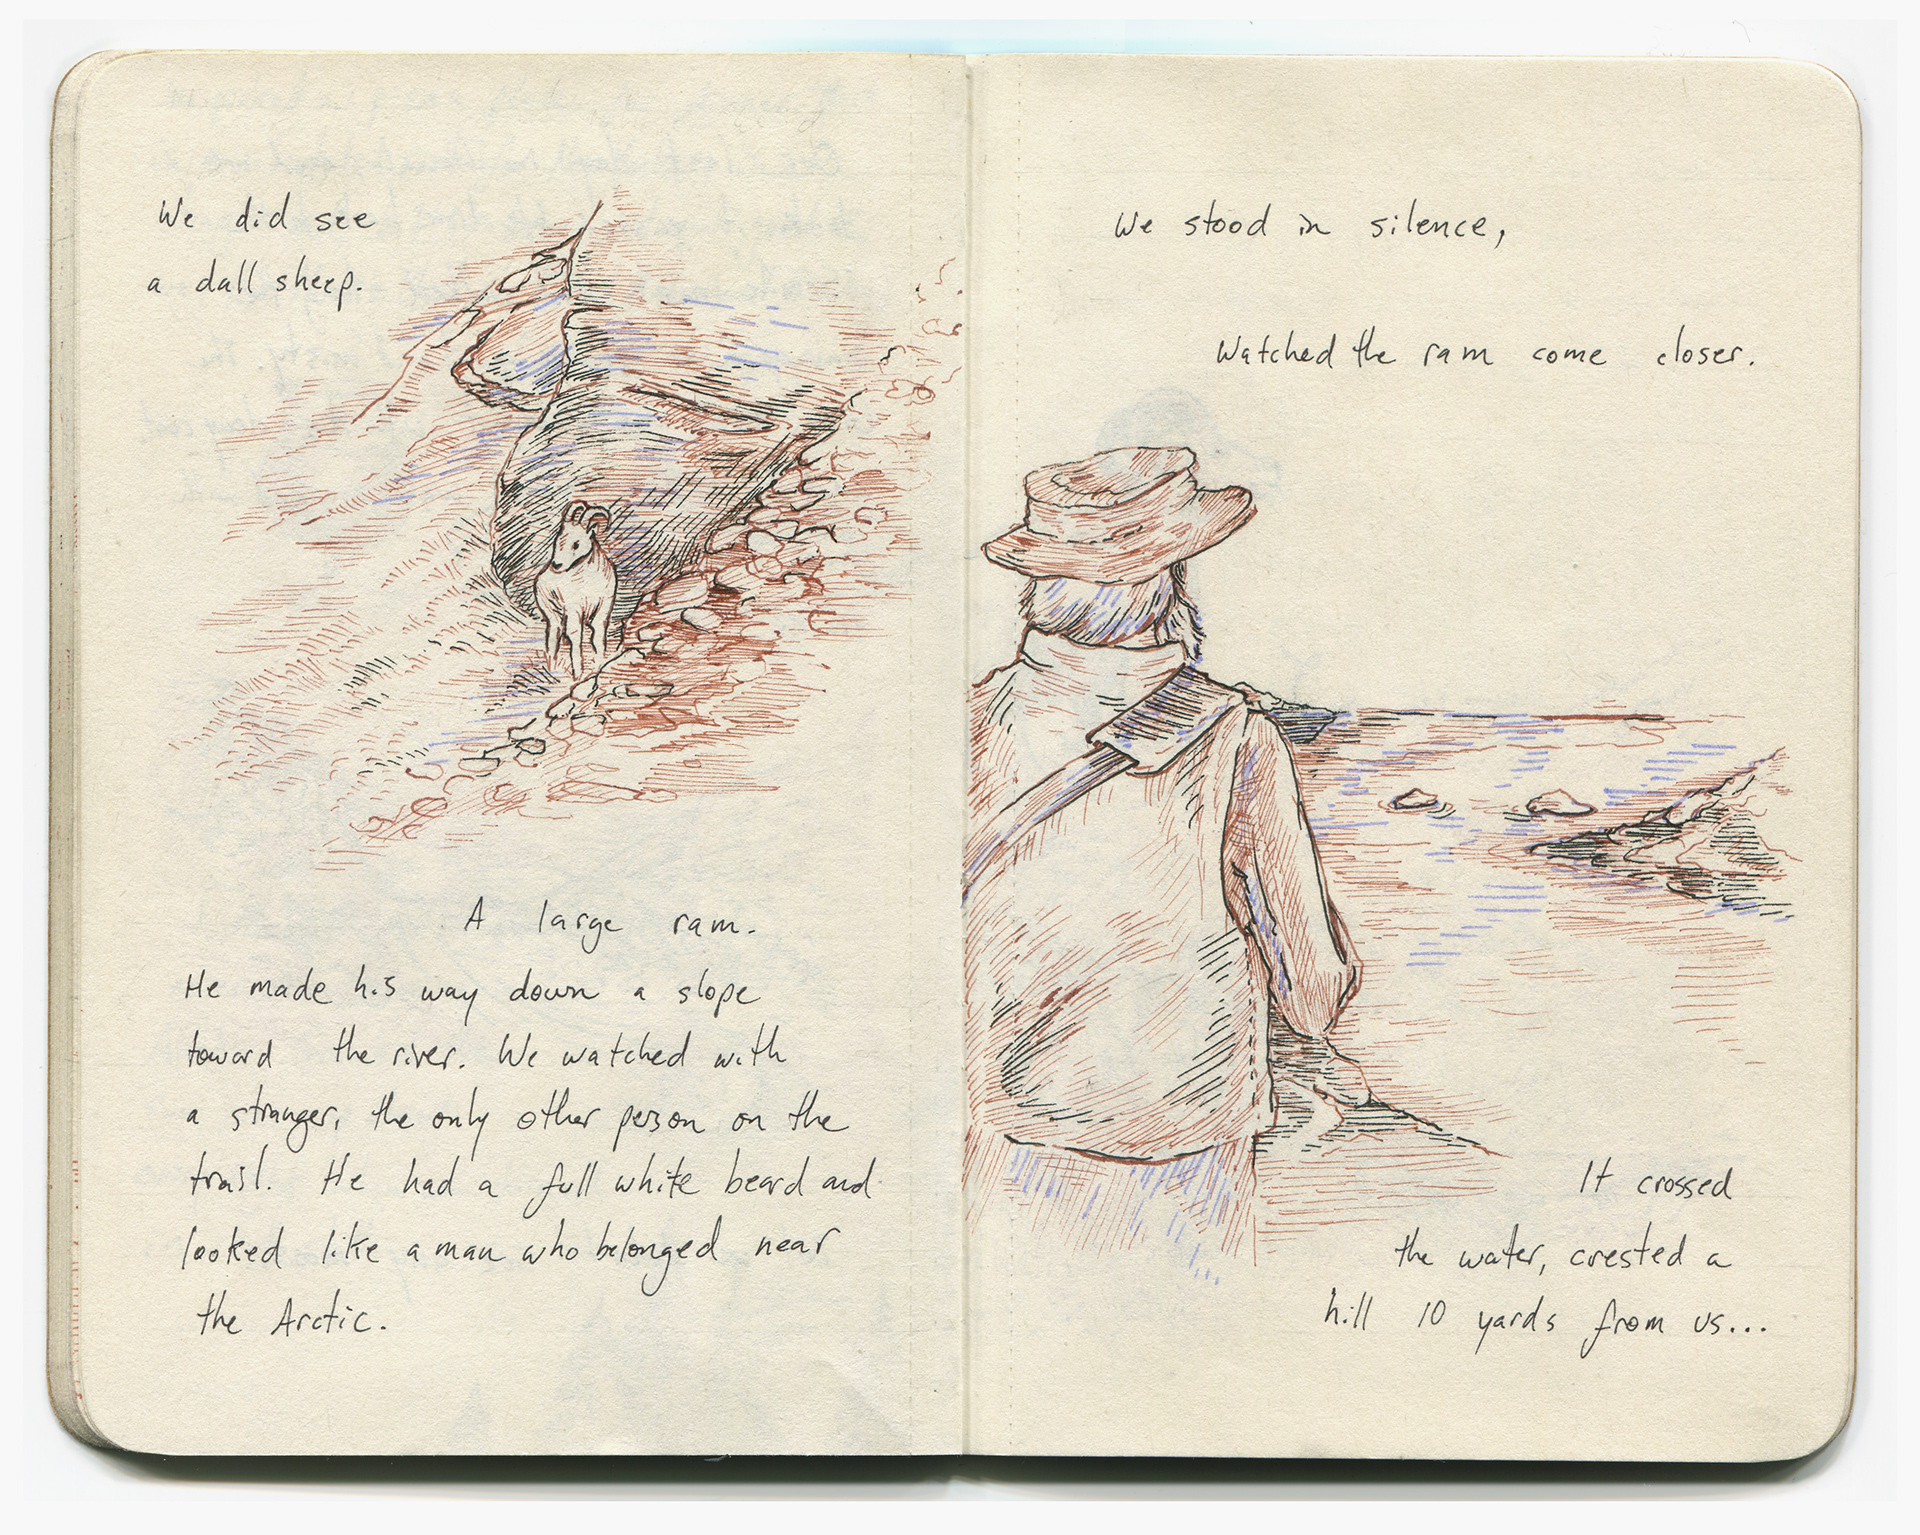 We did see
a dall sheep.
A large ram.
He made his way down a slope
toward the river. We watched with
a stranger, the only other person on the
trail. He had a full white beard and
looked like a man who belonged near
the Arctic.
We stood in silence,
Watched the ram come closer.
It crossed
the water, crested a
hill 10 yards from us...